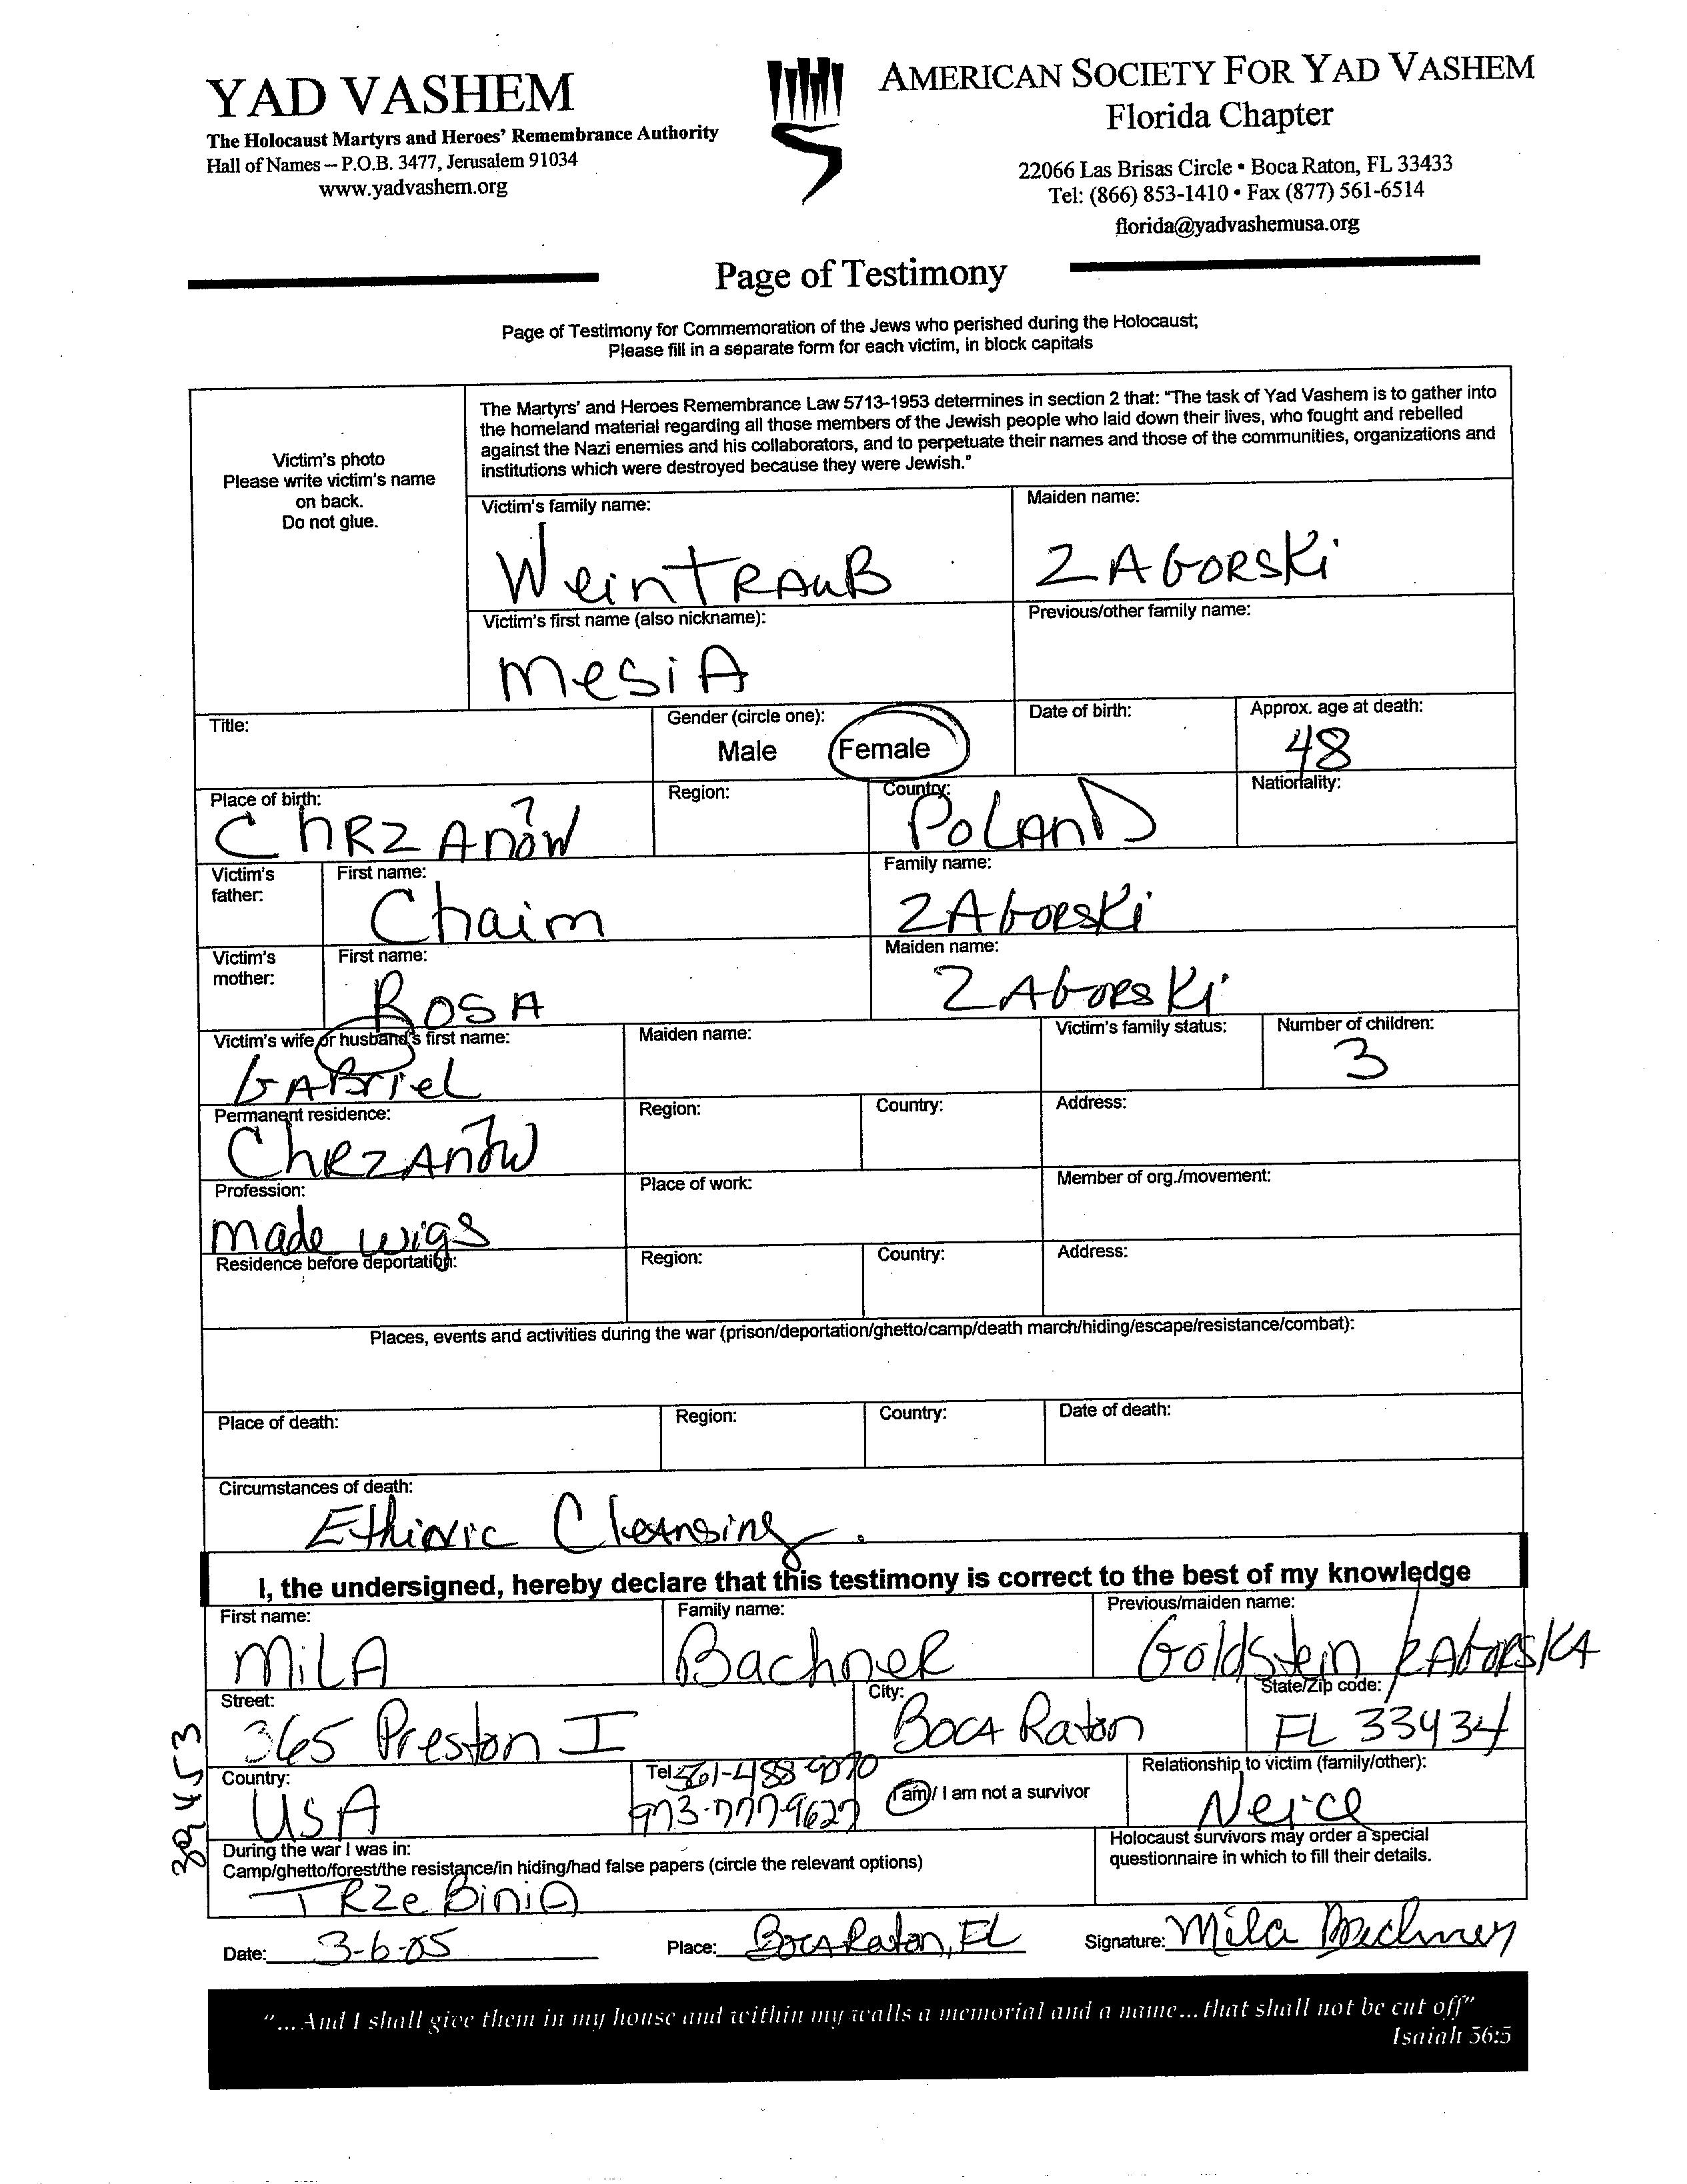 YAD VASHEM
The Holocaust Martyrs and Heroes' Remembrance Authority
Hall of Names – P.O.B. 3477, Jerusalem 91034
www.yadvashem.org
AMERICAN SOCIETY FOR YAD VASHEM
Florida Chapter
22066 Las Brisas Circle • Boca Raton, FL 33433
Tel: (866) 853-1410 • Fax (877) 561-6514
florida@yadvashemusa.org
Page of Testimony
Page of Testimony for Commemoration of the Jews who perished during the Holocaust;
Please fill in a separate form for each victim, in block capitals
Victim's photo
Please write victim's name
on back.
Do not glue.
The Martyrs' and Heroes Remembrance Law 5713-1953 determines in section 2 that: "The task of Yad Vashem is to gather into
the homeland material regarding all those members of the Jewish people who laid down their lives, who fought and rebelled
against the Nazi enemies and his collaborators, and to perpetuate their names and those of the communities, organizations and
institutions which were destroyed because they were Jewish."
Victim's family name: Maiden name:
WeinTRAuB ZAGORSKi
Victim's first name (also nickname): Previous/other family name:
MesiA
Title: Gender (circle one): Date of birth: Approx. age at death:
Male Female 48
Place of birth: Region: Country: Nationality:
ChRZAnów PoLAnD
Victim's father: First name: Family name:
Chaim ZAGORSKi
Victim's mother: First name: Maiden name:
ROSA ZAGORSKi
Victim's wife or husband's first name: Maiden name: Victim's family status: Number of children:
GABRieL 3
Permanent residence: Region: Country: Address:
ChRZAnów
Profession: Place of work: Member of org./movement:
made wigs
Residence before deportation: Region: Country: Address:
Places, events and activities during the war (prison/deportation/ghetto/camp/death march/hiding/escape/resistance/combat):
Place of death: Region: Country: Date of death:
Circumstances of death:
Ethinic Cleansing.
I, the undersigned, hereby declare that this testimony is correct to the best of my knowledge
First name: Family name: Previous/maiden name:
MiLA BachneR Goldstein / ZAGORSKA
Street: City: State/Zip code:
365 Preston I BOCA Raton FL 33434
Country: Tel: 561-488-9070 I am / I am not a survivor Relationship to victim (family/other):
USA 973-777-9627 Neice
During the war I was in:
Camp/ghetto/forest/the resistance/in hiding/had false papers (circle the relevant options)
TRZeBiniA
Holocaust survivors may order a special
questionnaire in which to fill their details.
Date: 3-6-05 Place: BOCA Raton, FL Signature: Mila Bachner
"...And I shall give them in my house and within my walls a memorial and a name...that shall not be cut off"
Isaiah 56:5